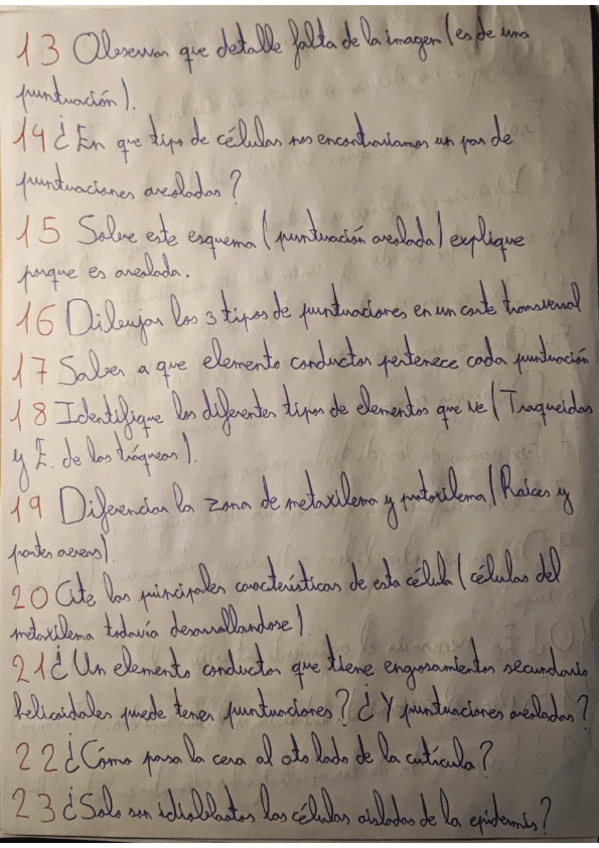 13 Observar que detalle falta de la imagen (es de una
puntuación).
14 ¿En que tipo de células nos encontrariamos un par de
puntuaciones areoladas?
15 Sobre este esquema (puntuación areolada) explique
porque es areolada.
16 Dibujar los 3 tipos de puntuaciones en un corte transversal
17 Saber a que elemento conductor pertenece cada puntuación
18 Identifique los diferentes tipos de elementos que ve (Traqueidas
y E. de las tráqueas).
19 Diferenciar la zona de metaxilema y protoxilema (Raíces y
partes aereas).
20 Cite las principales características de esta célula (células del
metaxilema todavía desarrollandose).
21 ¿Un elemento conductor que tiene engrosamientos secundario
helicoidales puede tener puntuaciones? ¿Y puntuaciones areoladas?
22 ¿Cómo pasa la cera al oto lado de la cutícula?
23 ¿Solo son idioblastos las células aisladas de la epidermis?